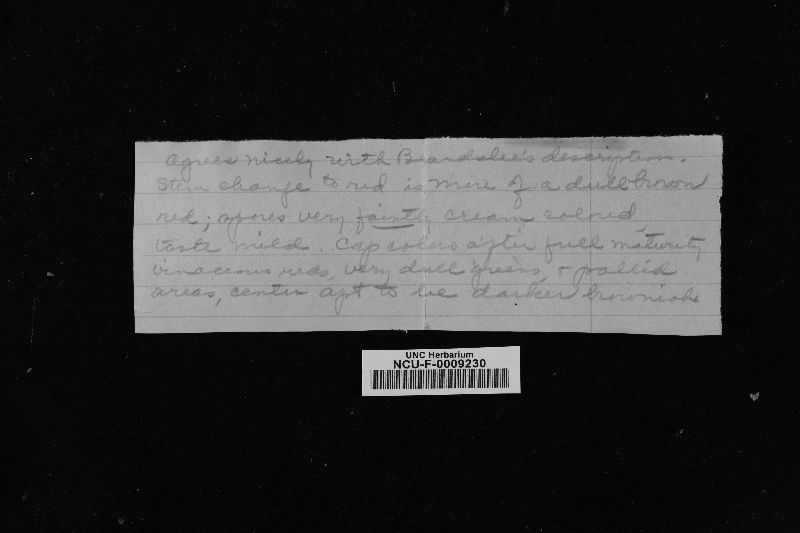 Agrees nicely with Beardslee's description.
Stem change to red is more of a dull brown
red; spores very faintly cream colored,
taste mild. Cap colors after full maturity
vinaceous reds, very dull greens, & pallid
areas, center apt to be darker brownish
UNC Herbarium
NCU-F-0009230